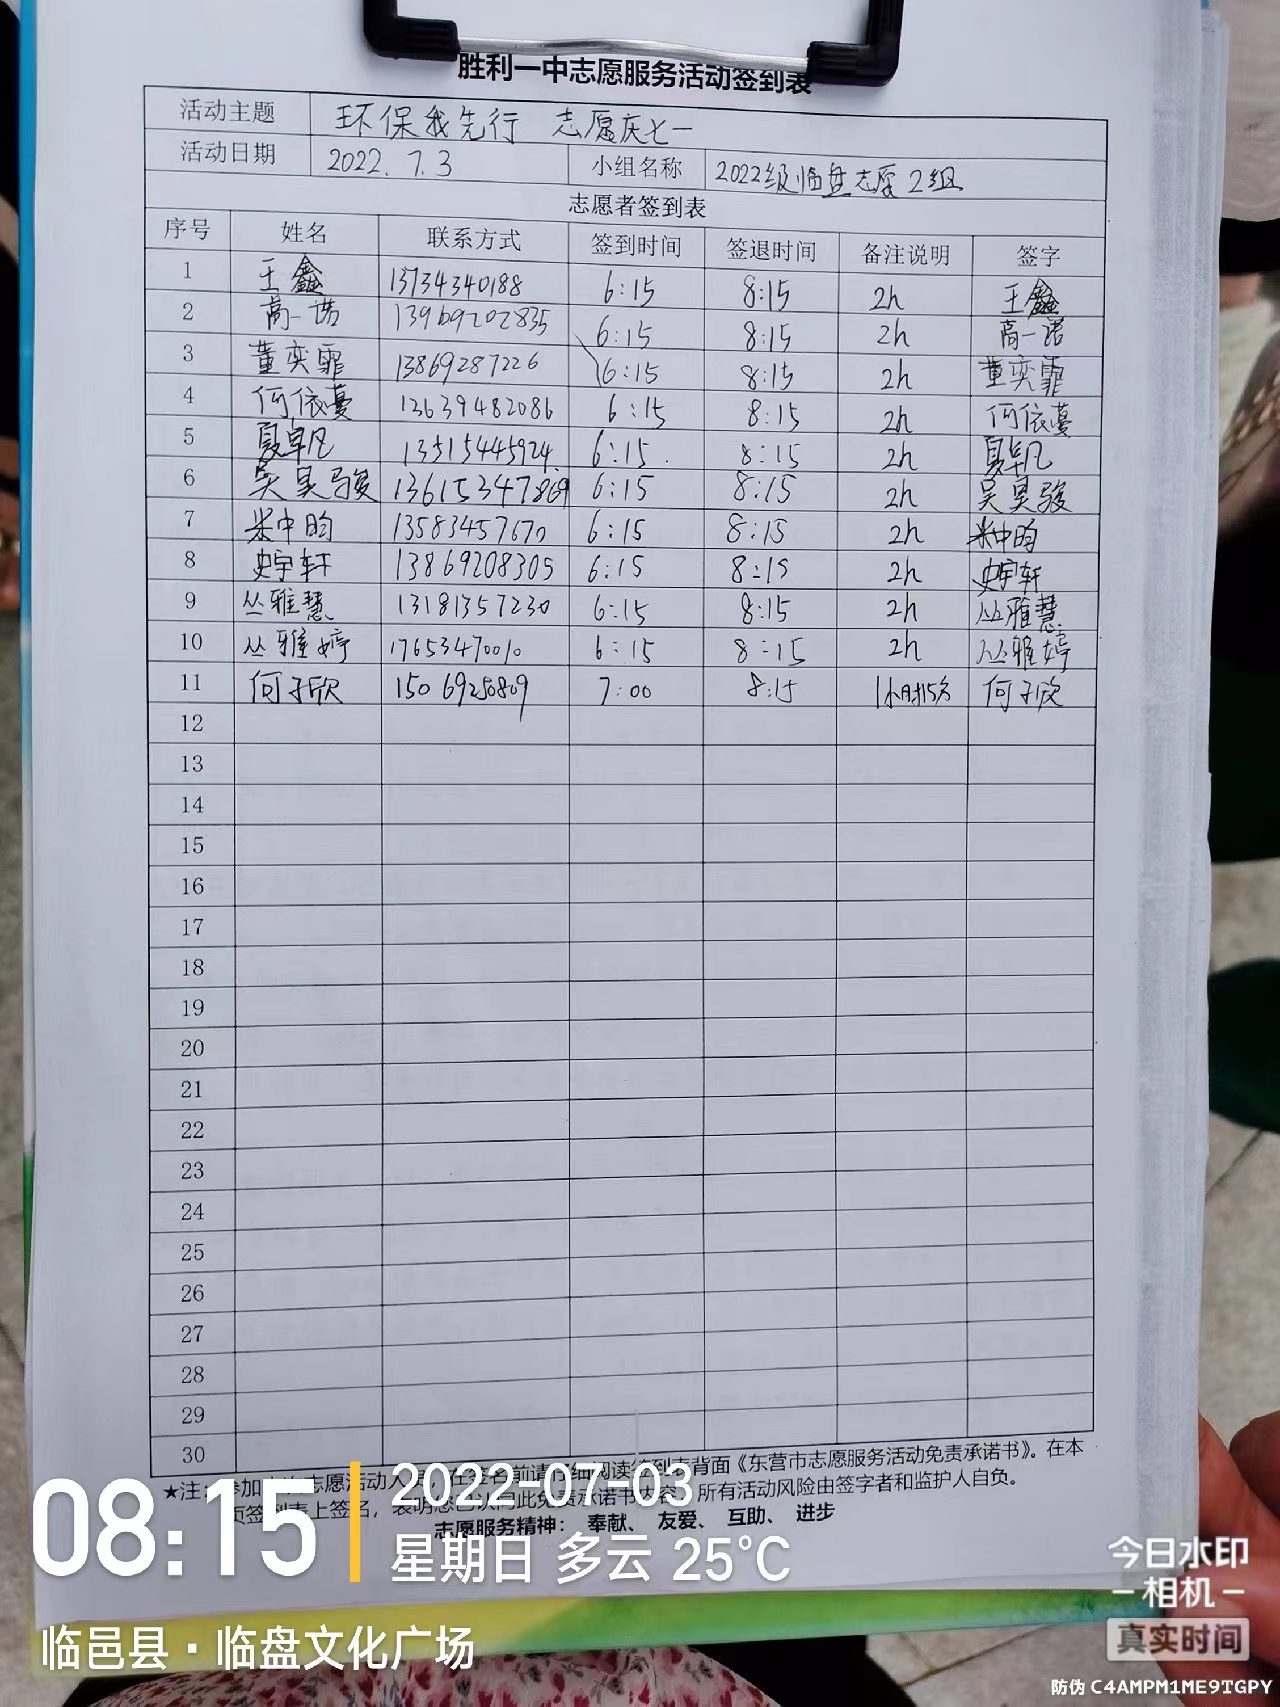 胜利一中志愿服务活动签到表
活动主题 环保我先行 志愿庆七一
活动日期 2022.7.3 小组名称 2022级临盘志愿2组
志愿者签到表
序号 姓名 联系方式 签到时间 签退时间 备注说明 签字
1 王鑫 13734340188 6:15 8:15 2h 王鑫
2 高一诺 13969202835 6:15 8:15 2h 高一诺
3 董奕霏 13869287226 6:15 8:15 2h 董奕霏
4 何依蔓 13639482086 6:15 8:15 2h 何依蔓
5 夏卓凡 13515445924 6:15 8:15 2h 夏卓凡
6 吴昊骏 13615347869 6:15 8:15 2h 吴昊骏
7 米中昀 13583457670 6:15 8:15 2h 米中昀
8 史宇轩 13869208305 6:15 8:15 2h 史宇轩
9 丛雅慧 13181357230 6:15 8:15 2h 丛雅慧
10 丛雅婷 17653470010 6:15 8:15 2h 丛雅婷
11 何子欣 15069250809 7:00 8:15 1小时15分 何子欣
12
13
14
15
16
17
18
19
20
21
22
23
24
25
26
27
28
29
30
★注：参加 志愿活动人 在签名前请仔细阅读签到表背面《东营市志愿服务活动免责承诺书》。在本
页签到表上签名，表明您已认同此免责承诺书内容，所有活动风险由签字者和监护人自负。
志愿服务精神： 奉献、 友爱、 互助、 进步
08:15
2022-07-03
星期日 多云 25°C
临邑县·临盘文化广场
今日水印
相机
真实时间
防伪 C4AMPM1ME9TGPY